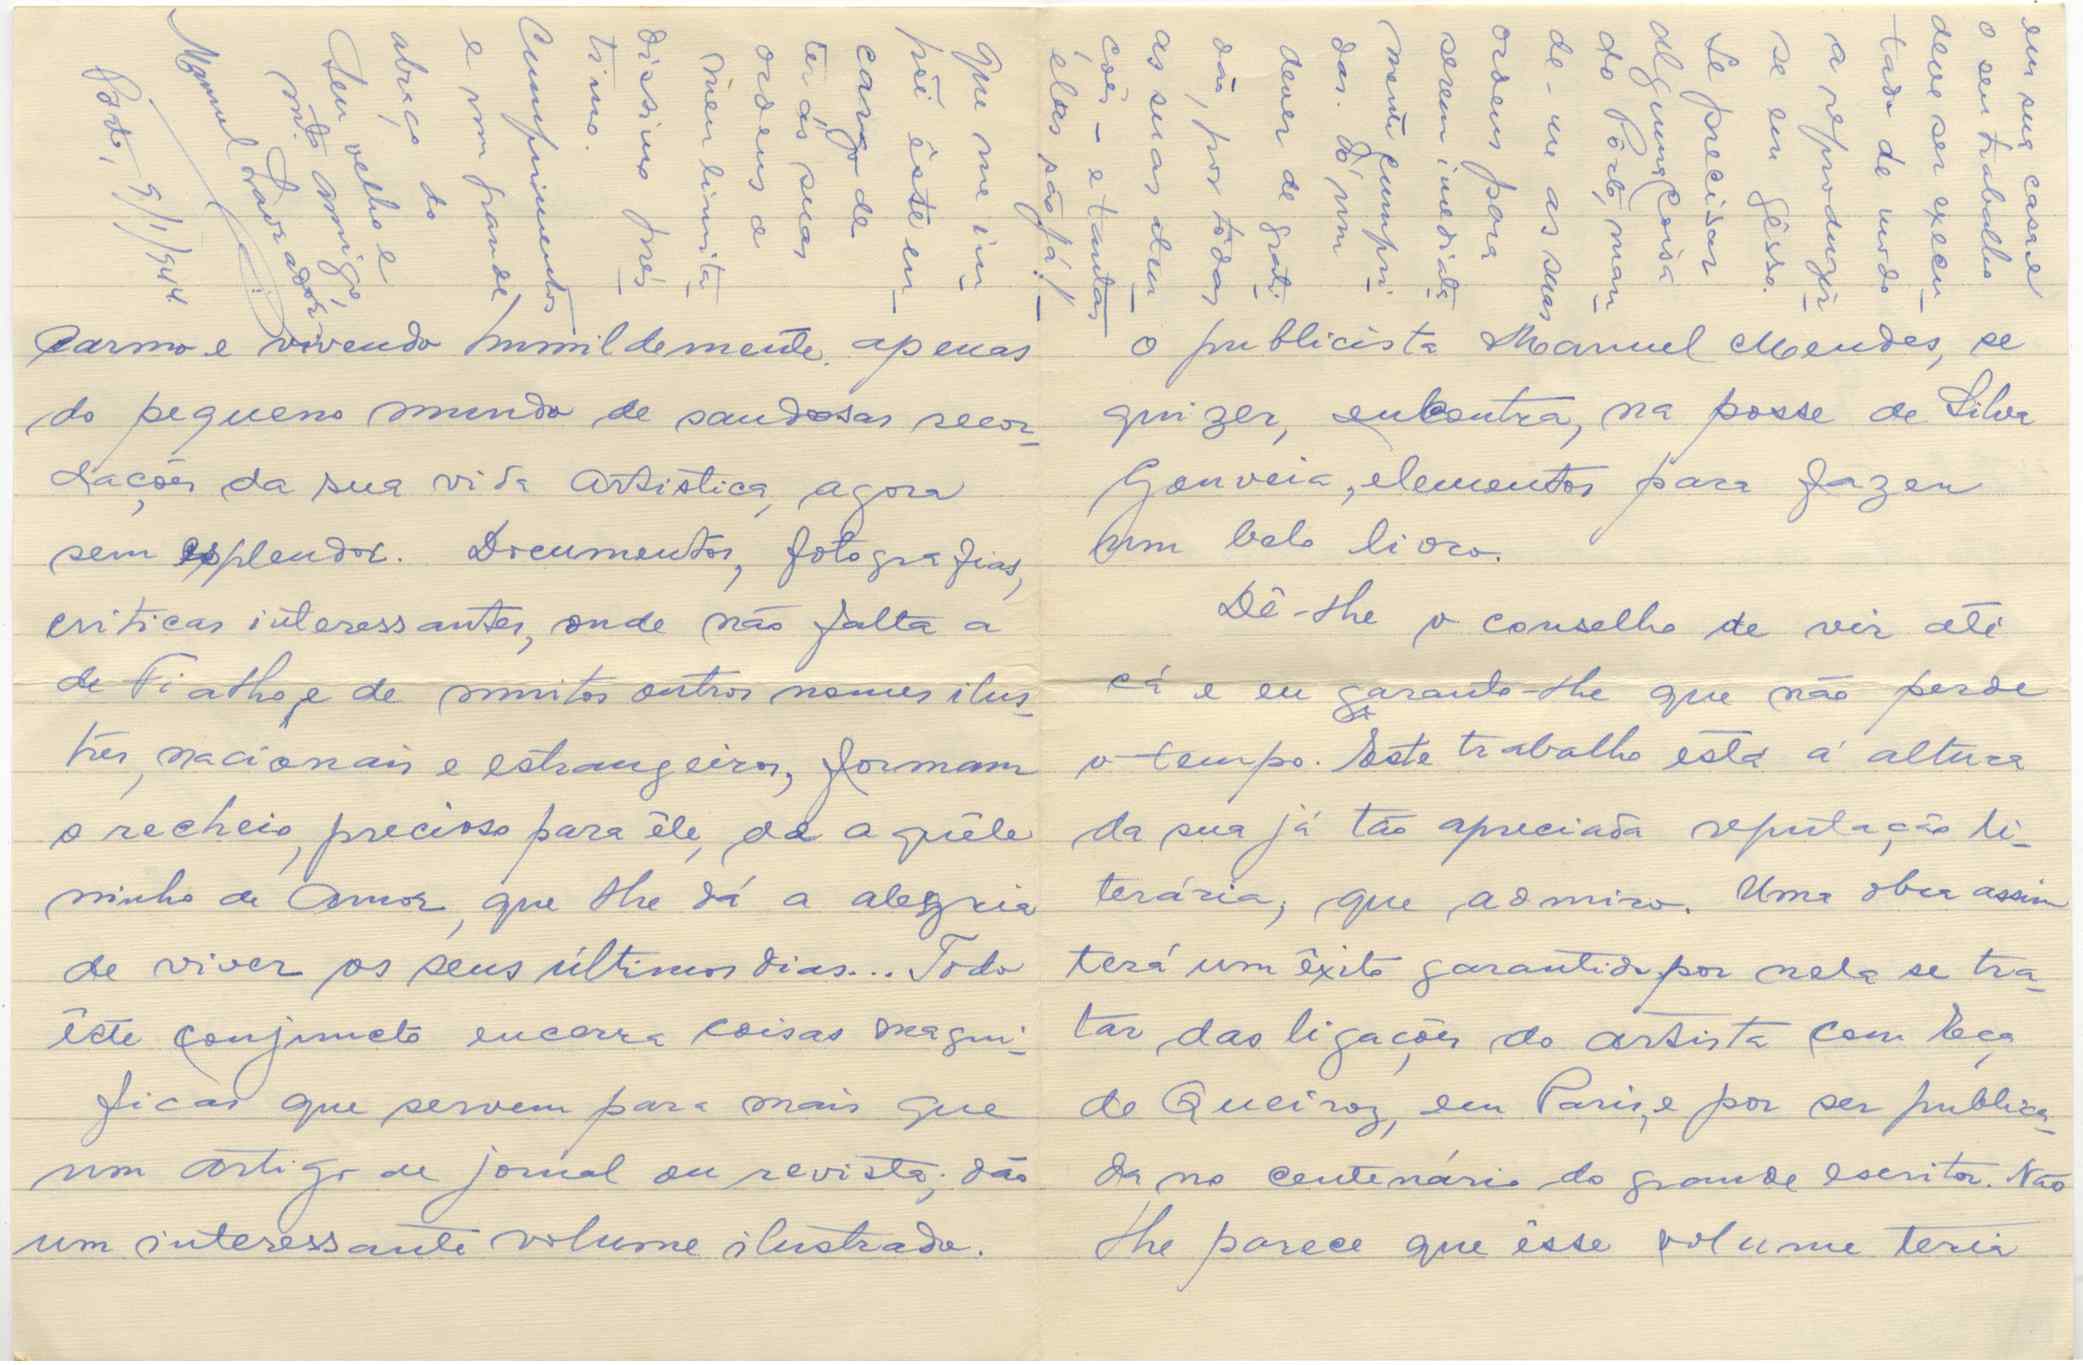 carmo e vivendo humildemente apenas
do pequeno mundo de saudosas recor-
dações da sua vida artística, agora
sem esplendor. Documentos, fotografias,
criticas interessantes, onde não falta a
de Fialho, e de muitos outros nomes ilus-
tres, nacionais e estrangeiros, formam
o recheio, precioso para êle, de aquêle
ninho de Amor, que lhe dá a alegria
de viver os seus últimos dias... Todo
êste conjuncto encerra coisas magni-
ficas que servem para mais que
um artigo de jornal ou revista; dão
um interessante volume ilustrado.
O publicista Manuel Mendes, se
quizer, encontra, na posse de Silva
Gouveia, elementos para fazer
um belo livro.
Dê-lhe o conselho de vir até
cá e eu garanto-lhe que não perde
o tempo. Este trabalho está á altura
da sua já tão apreciada reputação li-
terária, que admiro. Uma obra assim
terá um êxito garantido, por nela se tra-
tar das ligações do artista com Eça
de Queiroz, em Paris, e por ser publica-
da no centenário do grande escritor. Não
lhe parece que êsse volume teria
em sua casa e
o seu trabalho
deve ser execu-
tado de modo
a reproduzir-
se em gêsso.
Se precisar
alguma coisa
do Pôrto, man-
de-me as suas
ordens para
serem imediata-
mente cumpri-
das. É um
dever de grati-
dão, por tôdas
as suas aten-
ções - e tantas
elas são já! -
que me im-
põe êste en-
cargo de
ter ás suas
ordens o
meu limita-
dissimo prés-
timo.
Cumprimentos
e um grande
abraço do
seu velho e
mt.º amigo,
Manuel Lavrador
Porto, 9/1/944.